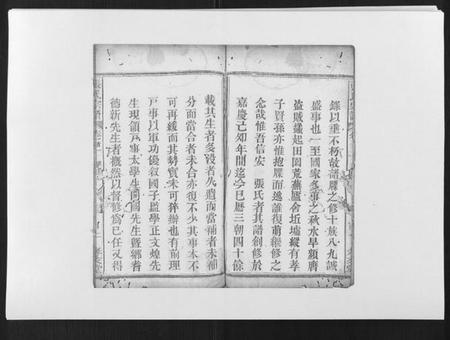 錄以垂不朽故譜牒之修十族八九誠
盛事也一至國家多事之秋水旱頻膺
盜賊蠭起田園荒蕪廬舍坵墟縱有孝
子賢孫亦惟抱牒而逃誰復萌綴修之
念哉惟吾信安 張氏者其譜創修於
嘉慶己卯年間迄今已歷三朝四十餘
載其生者多歿者久遺而當補者未補
分而當合者未合亦復不少其事本不
可再緩而其勢實未可猝辦也有前理
戸事以軍功優敘國子監學正文煌先
生現領戸事太學生 先生曁鄉耆
德新先生者慨然以督修為己任又得